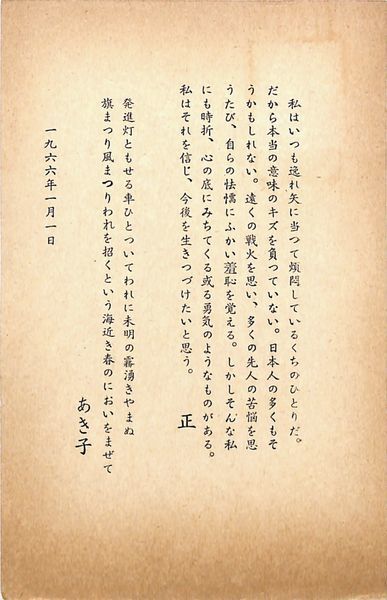 私はいつも逸れ矢に当つて煩悶しているくちのひとりだ。
だから本当の意味のキズを負つていない。日本人の多くもそ
うかもしれない。遠くの戦火を思い、多くの先人の苦悩を思
うたび、自らの怯懦にふかい羞恥を覚える。しかしそんな私
にも時折、心の底にみちてくる或る勇気のようなものがある。
私はそれを信じ、今後を生きつづけたいと思う。
正
発進灯ともせる車ひとついてわれに未明の霧湧きやまぬ
旗まつり風まつりわれを招くという海近き春のにおいをまぜて
あき子
一九六六年一月一日